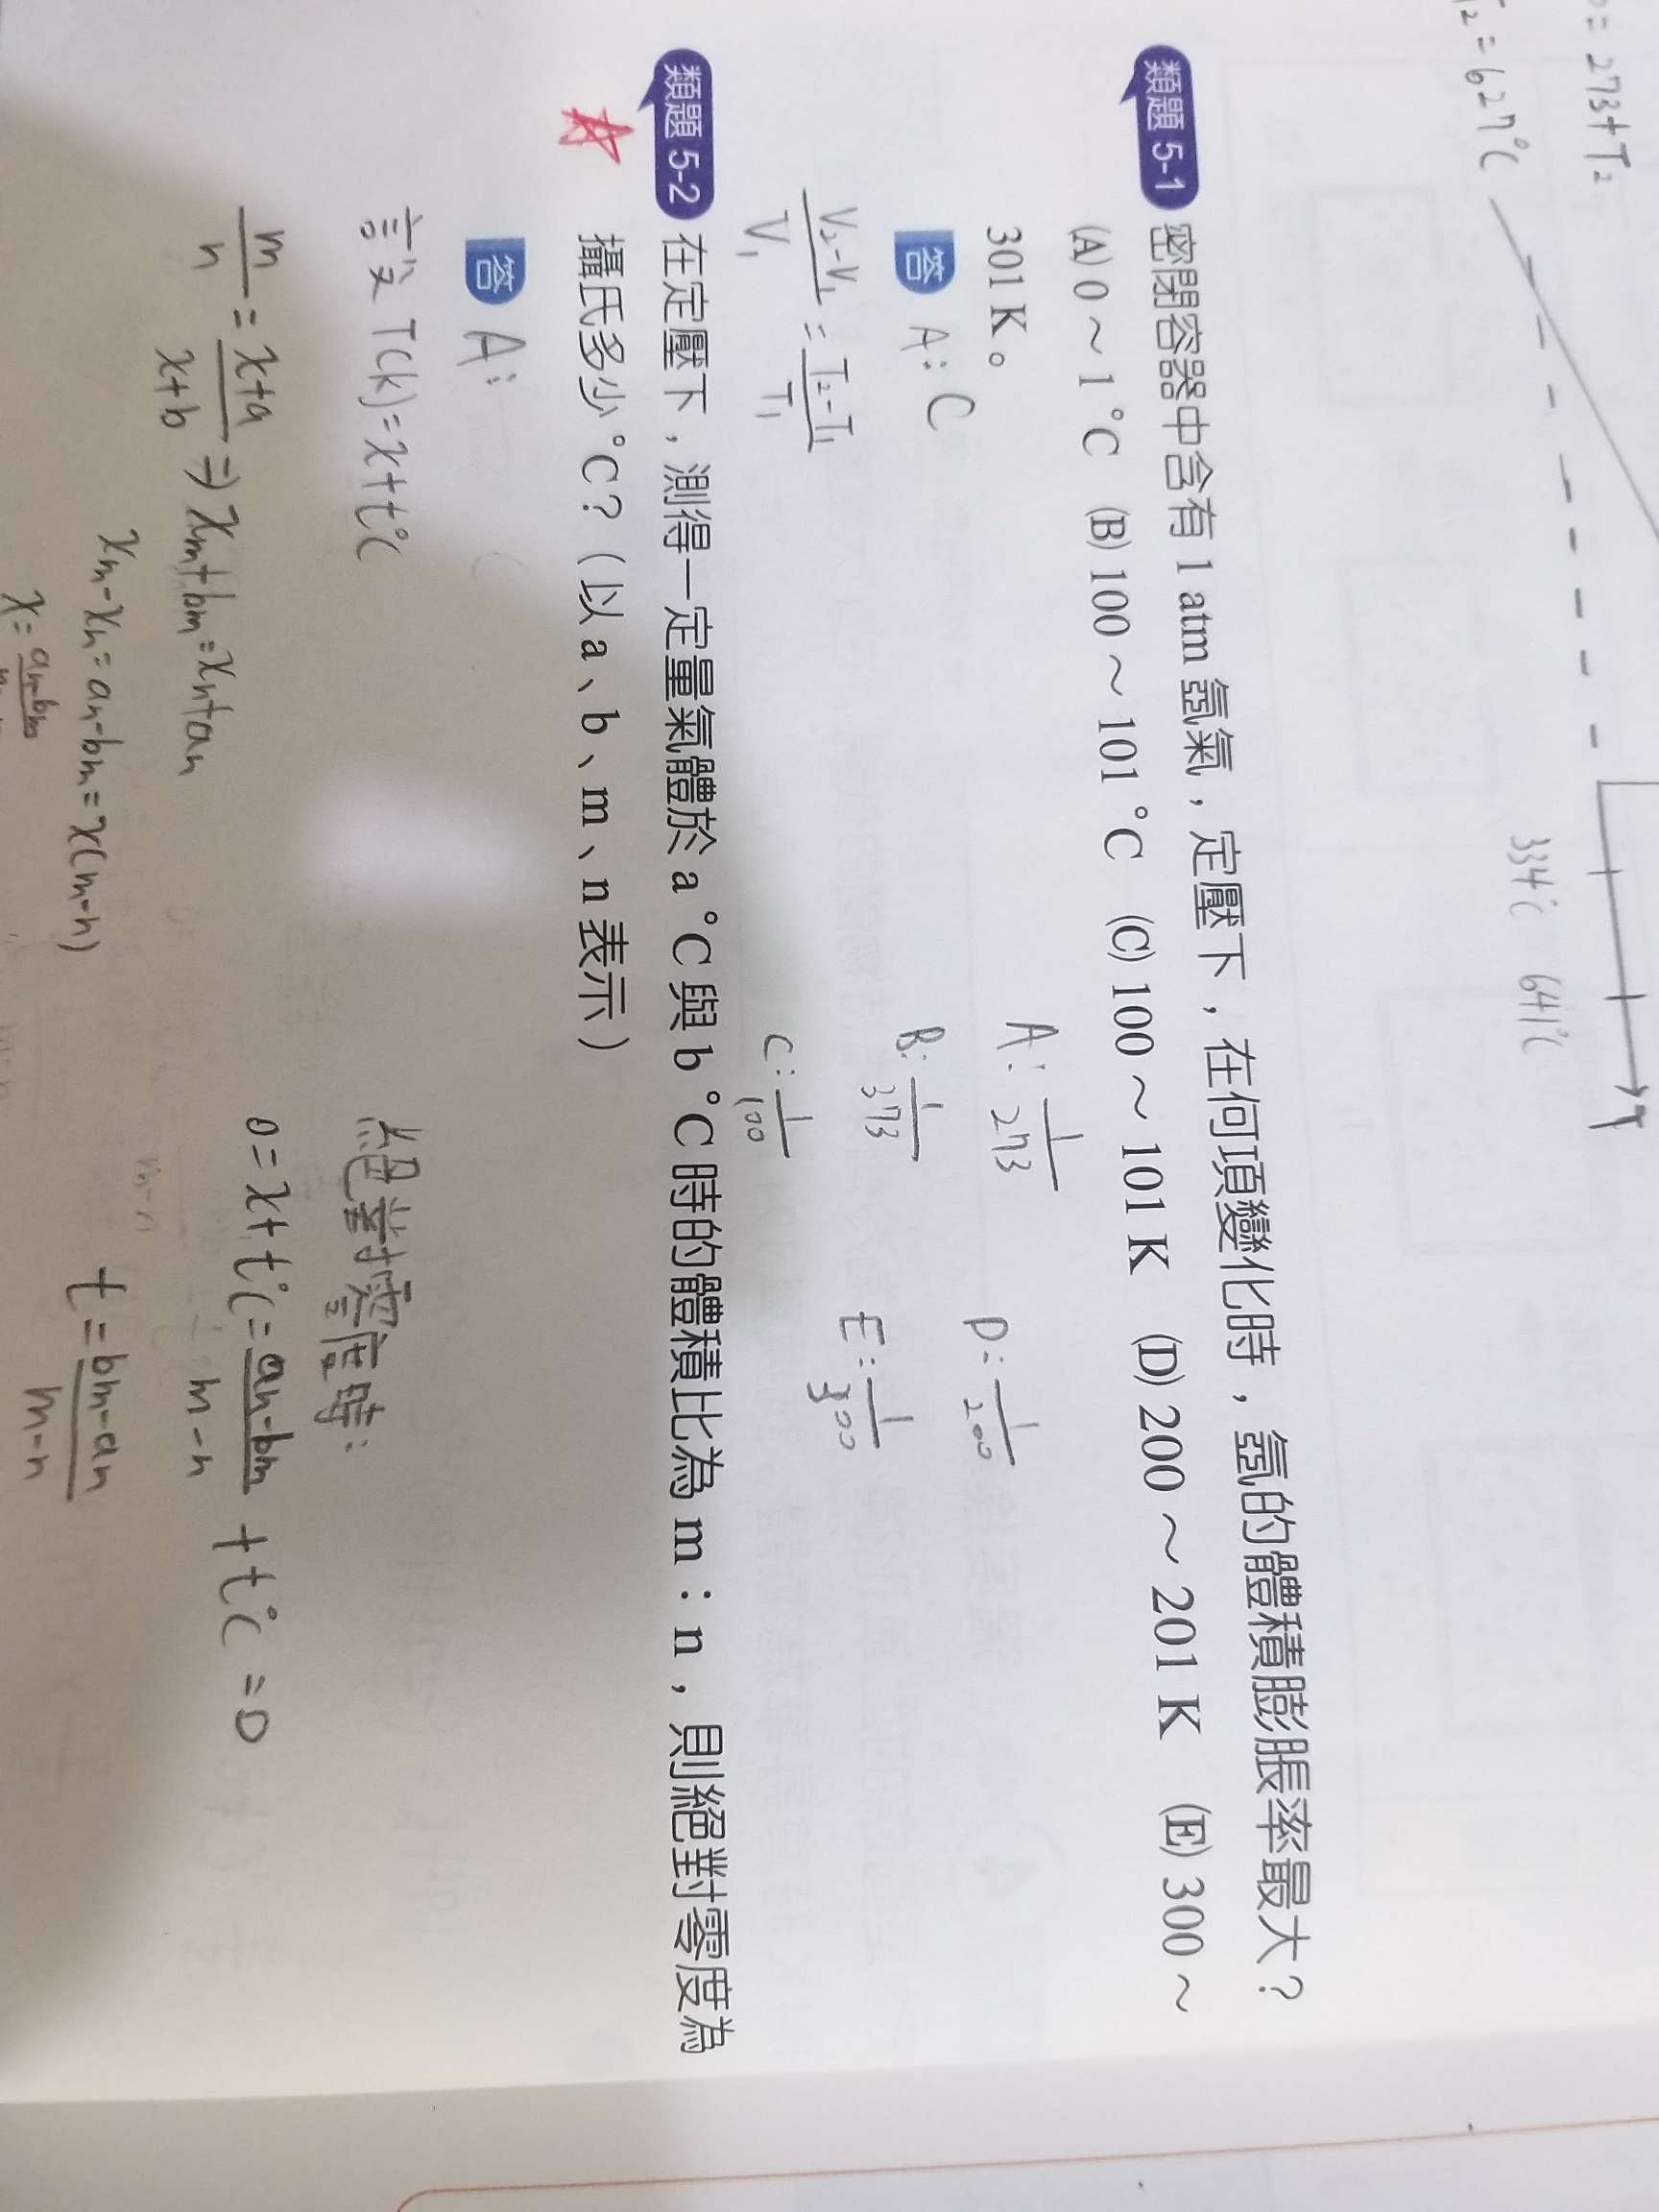 = 273+T₂
T₂=627℃
334℃ 641℃
類題 5-1 密閉容器中含有 1 atm 氬氣，定壓下，在何項變化時，氬的體積膨脹率最大？
(A) 0～1 ℃ (B) 100～101 ℃ (C) 100～101 K (D) 200～201 K (E) 300～
301 K。
答 A: C
V₂-V₁/V₁ = T₂-T₁/T₁
A: 1/273
B: 1/373
C: 1/100
D: 1/200
E: 1/300
類題 5-2 在定壓下，測得一定量氣體於 a ℃ 與 b ℃ 時的體積比為 m：n，則絕對零度為
攝氏多少 ℃？（以 a、b、m、n 表示）
答 A:
設 T(k)=x+t℃
m/n = x+a/x+b ⇒ xm+bm=xn+an
xm-xn=an-bm=x(m-n)
x= an-bm
絕對零度時:
0=x+t℃= an-bm/m-n +t℃ =0
t= bm-an/m-n